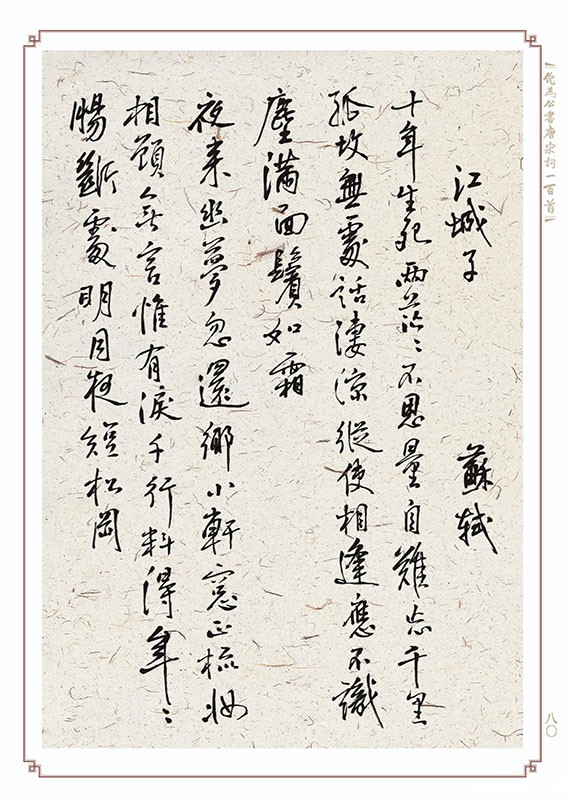 【倪為公書唐宋詞一百首】
江城子 蘇軾
十年生死兩茫〻不思量自難忘千里
孤坟無處話淒涼縱使相逢應不識
塵滿面鬢如霜
夜來幽夢忽還鄉小軒窓正梳妝
相顧無言惟有淚千行料得年〻
腸斷處明月夜短松岡
八〇